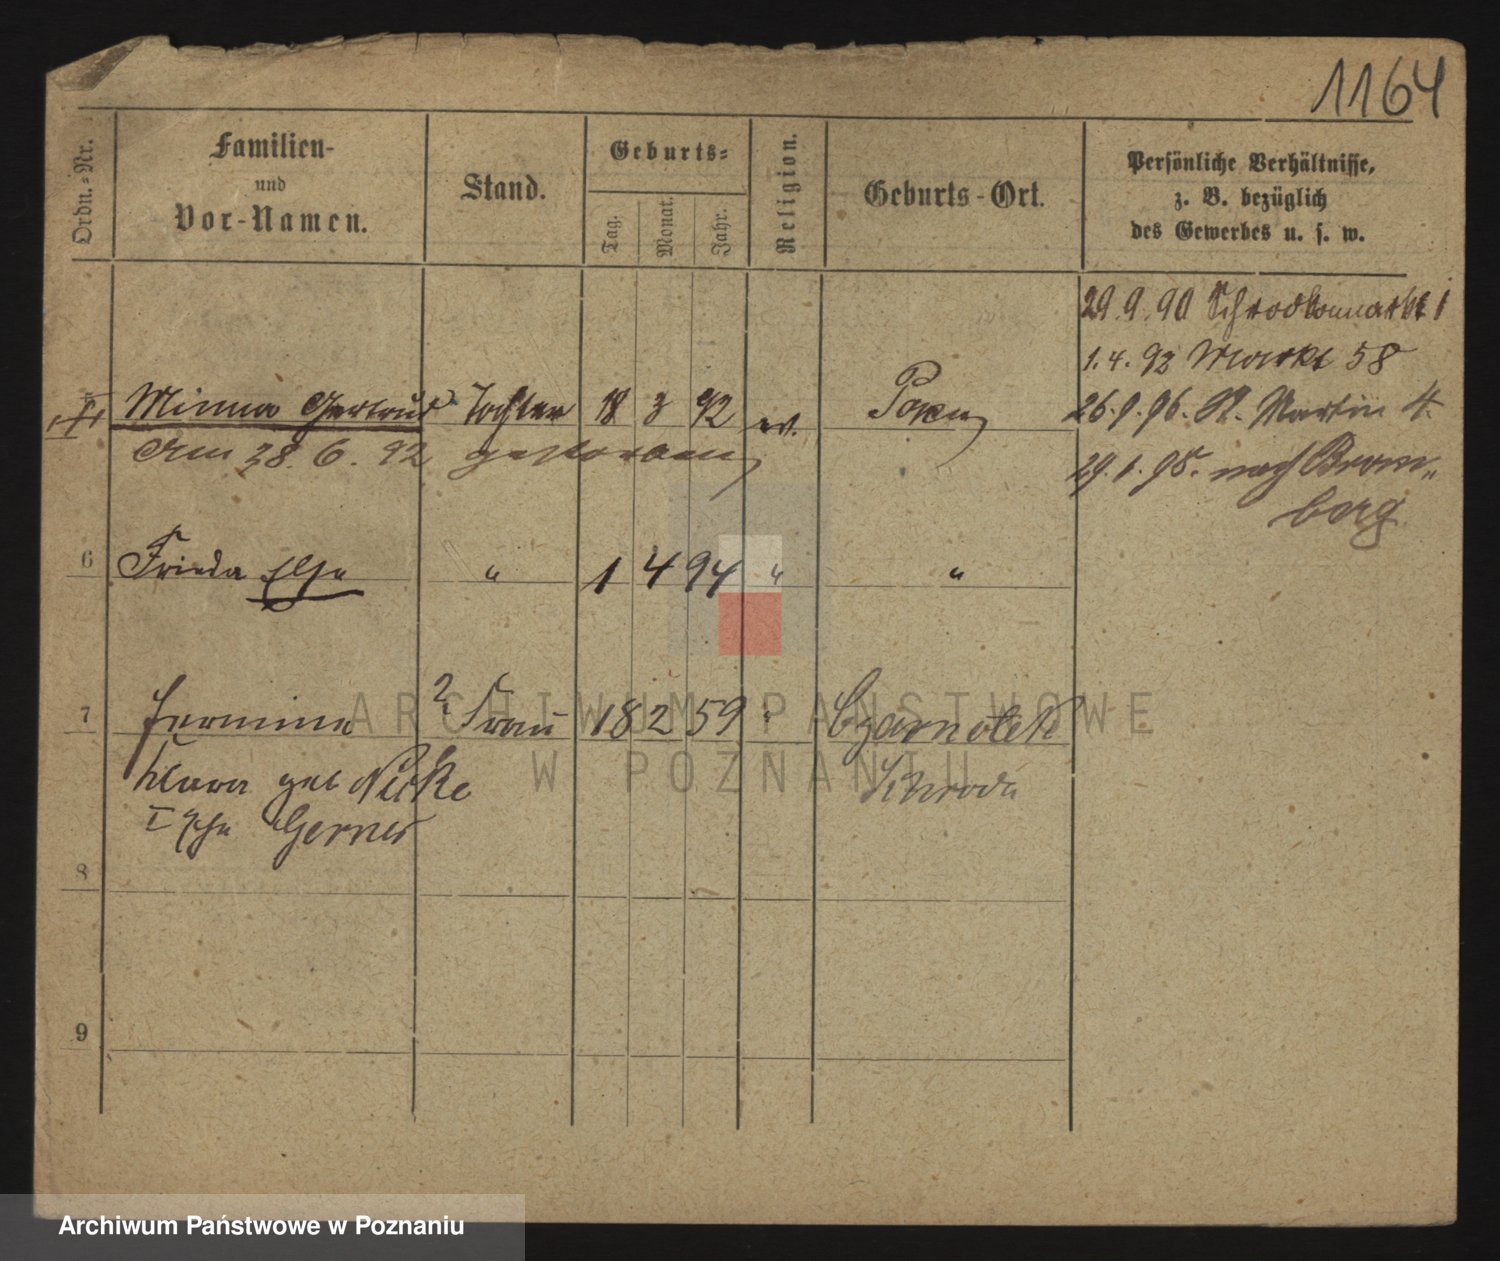 1164
Ordn.-Nr.
Familien-
und
Vor-Namen.
Stand.
Geburts-
Tag.
Monat.
Jahr.
Religion.
Geburts-Ort.
Persönliche Verhältnisse,
z. B. bezüglich
des Gewerbes u. s. w.
29.9.90 Schrodkamarkt 1
1.4.92 Markt 58
26.9.96. St. Martin 4.
29.1.98. nach Brom-
berg
Minna Gertrud Tochter 18 3 92 ev. Posen
Am 28.6.92 gestorben
6 Frieda Else " 1 4 94 " "
7 Hermine 2 Frau 18 2 59 " Czarnotek
Klara geb Nitke Schroda
I Ehe Gerner
8
9
ARCHIWUM PAŃSTWOWE
W POZNANIU
Archiwum Państwowe w Poznaniu